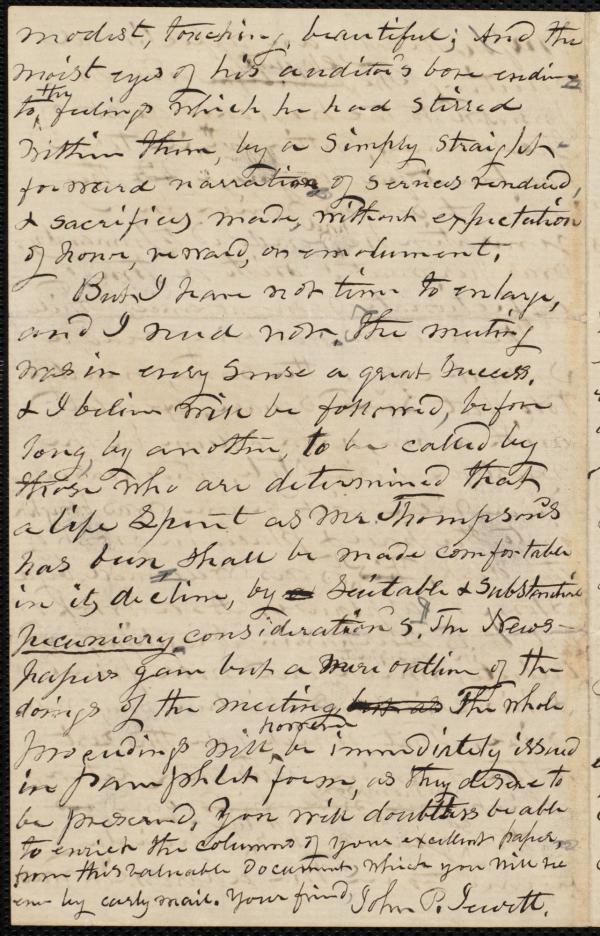 modest, touching, beautiful; And the
moist eyes of his auditors bore eviden-
to, the feelings which he had stirred
within them, by a simply straight-
forward narration of services rendered,
& sacrifices made, without expectation
of honor, reward, or emolument.
But I have not time to enlarge,
and I need not. The meeting
was in every sense a great success.
& I believe will be followed, before
long, by another, to be called by
those who are determined that
a life spent as Mr. Thompson's
has been shall be made comfortable
in its decline, by a suitable & substantial
pecuniary considerations. The News-
papers gave but a mere outline of the
doings of the meeting, but as The whole
proceedings will, however be immediately issued
in pamphlet form, as they desire to
be preserved, You will doubtless be able
to enrich the columns of your excellent paper,
from this valuable Document, which you will re
ceive by early mail. Your friend, John P. Jewett.